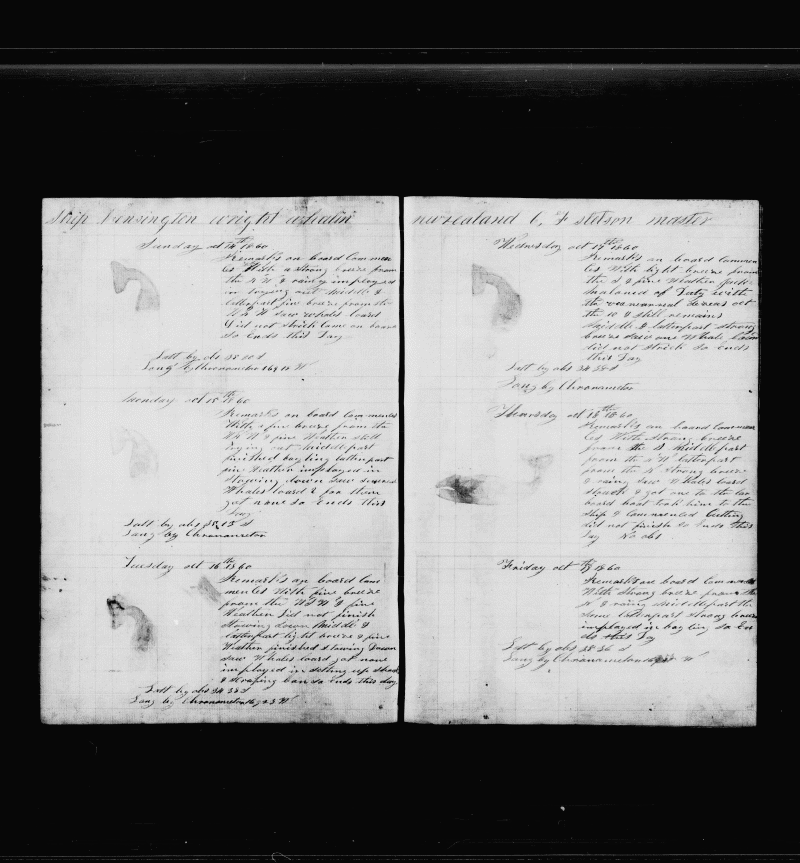 Ship Kensington wright whalin
Sunday oct 14th 1860
Remarks on board Commen
ces With a strong breeze from
the W N W & rainy imployed
in boying out Middle &
latterpart fine breeze from the
W N W Saw whales loard
Did not strick Came on board
So Ends this Day
Latt by obs
Long by Chronometer 169 14 W
Monday oct 15th 1860
Remarks on board Commences
With a fine breeze from the
W N W & fine Weather still
boying out Middle part
finished boyling latterpart
fine Weather imployed in
Stowing down Saw several
Whales loard & for them
got none So Ends this
Day
Latt by obs 35 15 S
Long by Chronometer
Tuesday oct 16th 1860
Remarks on board Com
mences With fine breeze
from the W N W & fine
Weather did not finish
Stowing down Middle &
latterpart light breeze & fine
Weather finished Stowing Down
Saw Whales loard got none
imployed in setting up
& scraping So Ends this day
Latt by obs 34 38 S
Long by Chronometer
newzealand C, F stetson master
Wednesday oct 17th 1860
Remarks on board Commen
ces With light breeze from
the S & fine Weather
the
the W & still remains
Middle & latterpart strong
breeze Saw one Whale
did not Strick So Ends
this Day
Latt by obs 34 38 S
Long by Chronometer
Thursday oct 18th 1860
Remarks on board Commen
ces With Strong breeze
from the N Middle part
from the N W latterpart
from the W Strong breeze
& rainy Saw Whales loard
struck & got one to the lar
board boat took him to the
Ship & Commenced Cutting
did not finish So Ends this
Day No obs
Friday oct 19th 1860
Remarks on board Commences
With Strong breeze from the
W & rainy Middle part the
Same latterpart Strong breeze
imployed in boyling So En
ds this Day
Latt by obs 35 36 S
Long by Chronometer W